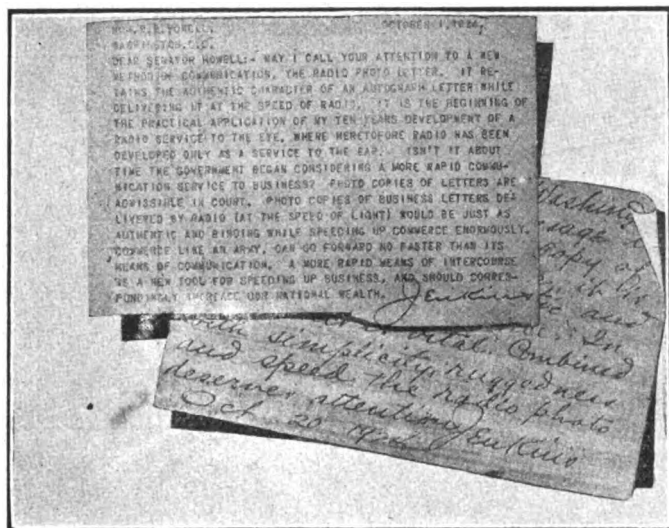 OCTOBER 1, 1924
WASHINGTON, D.C.
DEAR SENATOR HOWELL:- MAY I CALL YOUR ATTENTION TO A NEW
METHOD OF COMMUNICATION, THE RADIO PHOTO LETTER. IT RE-
TAINS THE AUTHENTIC CHARACTER OF AN AUTOGRAPH LETTER WHILE
DELIVERING IT AT THE SPEED OF RADIO. IT IS THE BEGINNING OF
THE PRACTICAL APPLICATION OF MY TEN YEARS DEVELOPMENT OF A
RADIO SERVICE TO THE EYE, WHERE HERETOFORE RADIO HAS BEEN
DEVELOPED ONLY AS A SERVICE TO THE EAR. ISN'T IT ABOUT
TIME THE GOVERNMENT BEGAN CONSIDERING A MORE RAPID COMMU-
NICATION SERVICE TO BUSINESS? PHOTO COPIES OF LETTERS ARE
ADMISSIBLE IN COURT. PHOTO COPIES OF BUSINESS LETTERS DE-
LIVERED BY RADIO (AT THE SPEED OF LIGHT) WOULD BE JUST AS
AUTHENTIC AND BINDING WHILE SPEEDING UP COMMERCE ENORMOUSLY.
COMMERCE LIKE AN ARMY, CAN GO FORWARD NO FASTER THAN ITS
MEANS OF COMMUNICATION. A MORE RAPID MEANS OF INTERCOURSE
A NEW TOOL FOR SPEEDING UP BUSINESS, AND SHOULD CORRES-
PONDINGLY INCREASE OUR NATIONAL WEALTH. Jenkins
copy of
and
In
vital. Combined
with simplicity, ruggedness
and speed the radio photo
deserves attention. Jenkins
Oct 20